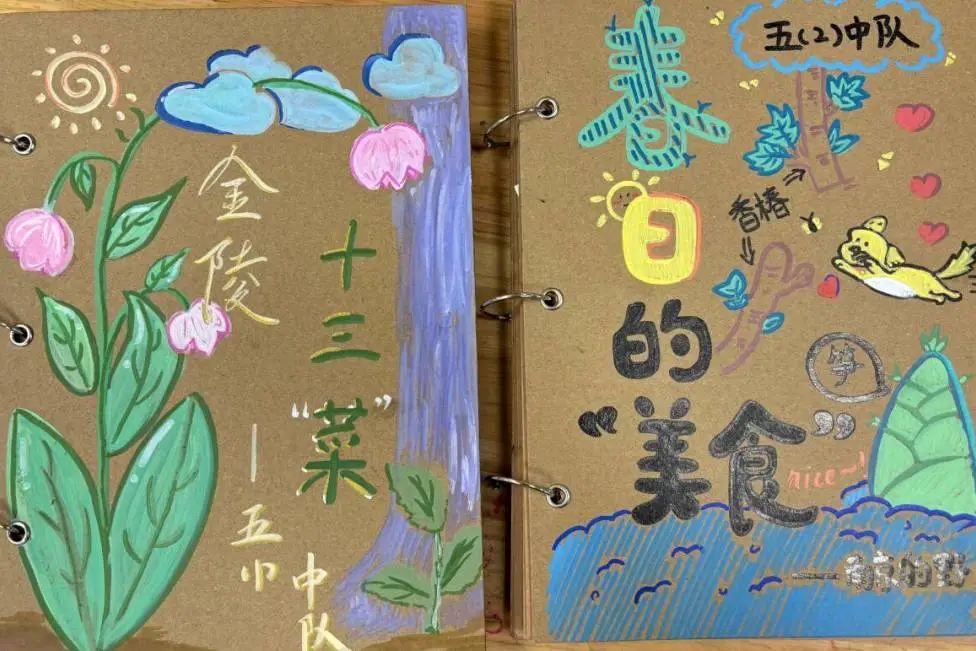 金陵
十三“菜”
—五
中队
五(2)中队
春日的“美食”
香椿
笋
nice~!